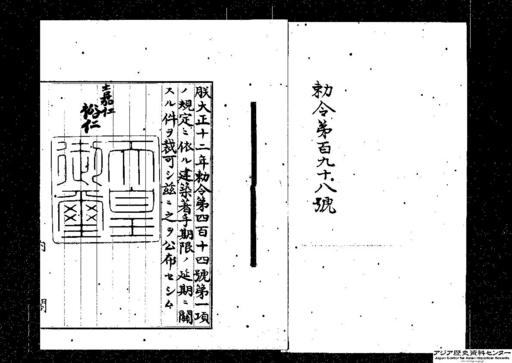 勅令第百九十八號
朕大正十二年勅令第四百十四號第一項
ノ規定ニ依ル建築著手期限ノ延期ニ關
スル件ヲ裁可シ茲ニ之ヲ公布セシム
嘉仁
裕仁
天皇
御璽
内閣
アジア歴史資料センター
Japan Center for Asian Historical Records